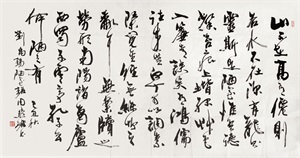 山不在高有仙則
名水不在深有龍則
靈斯是陋室惟吾德
馨苔痕上階綠草色
入簾青談笑有鴻儒
往來無白丁可以調
素琴閱金經無絲竹之
亂耳無案牘之
勞形南陽諸葛廬
西蜀子雲亭孔子云
何陋之有
劉禹錫陋室銘